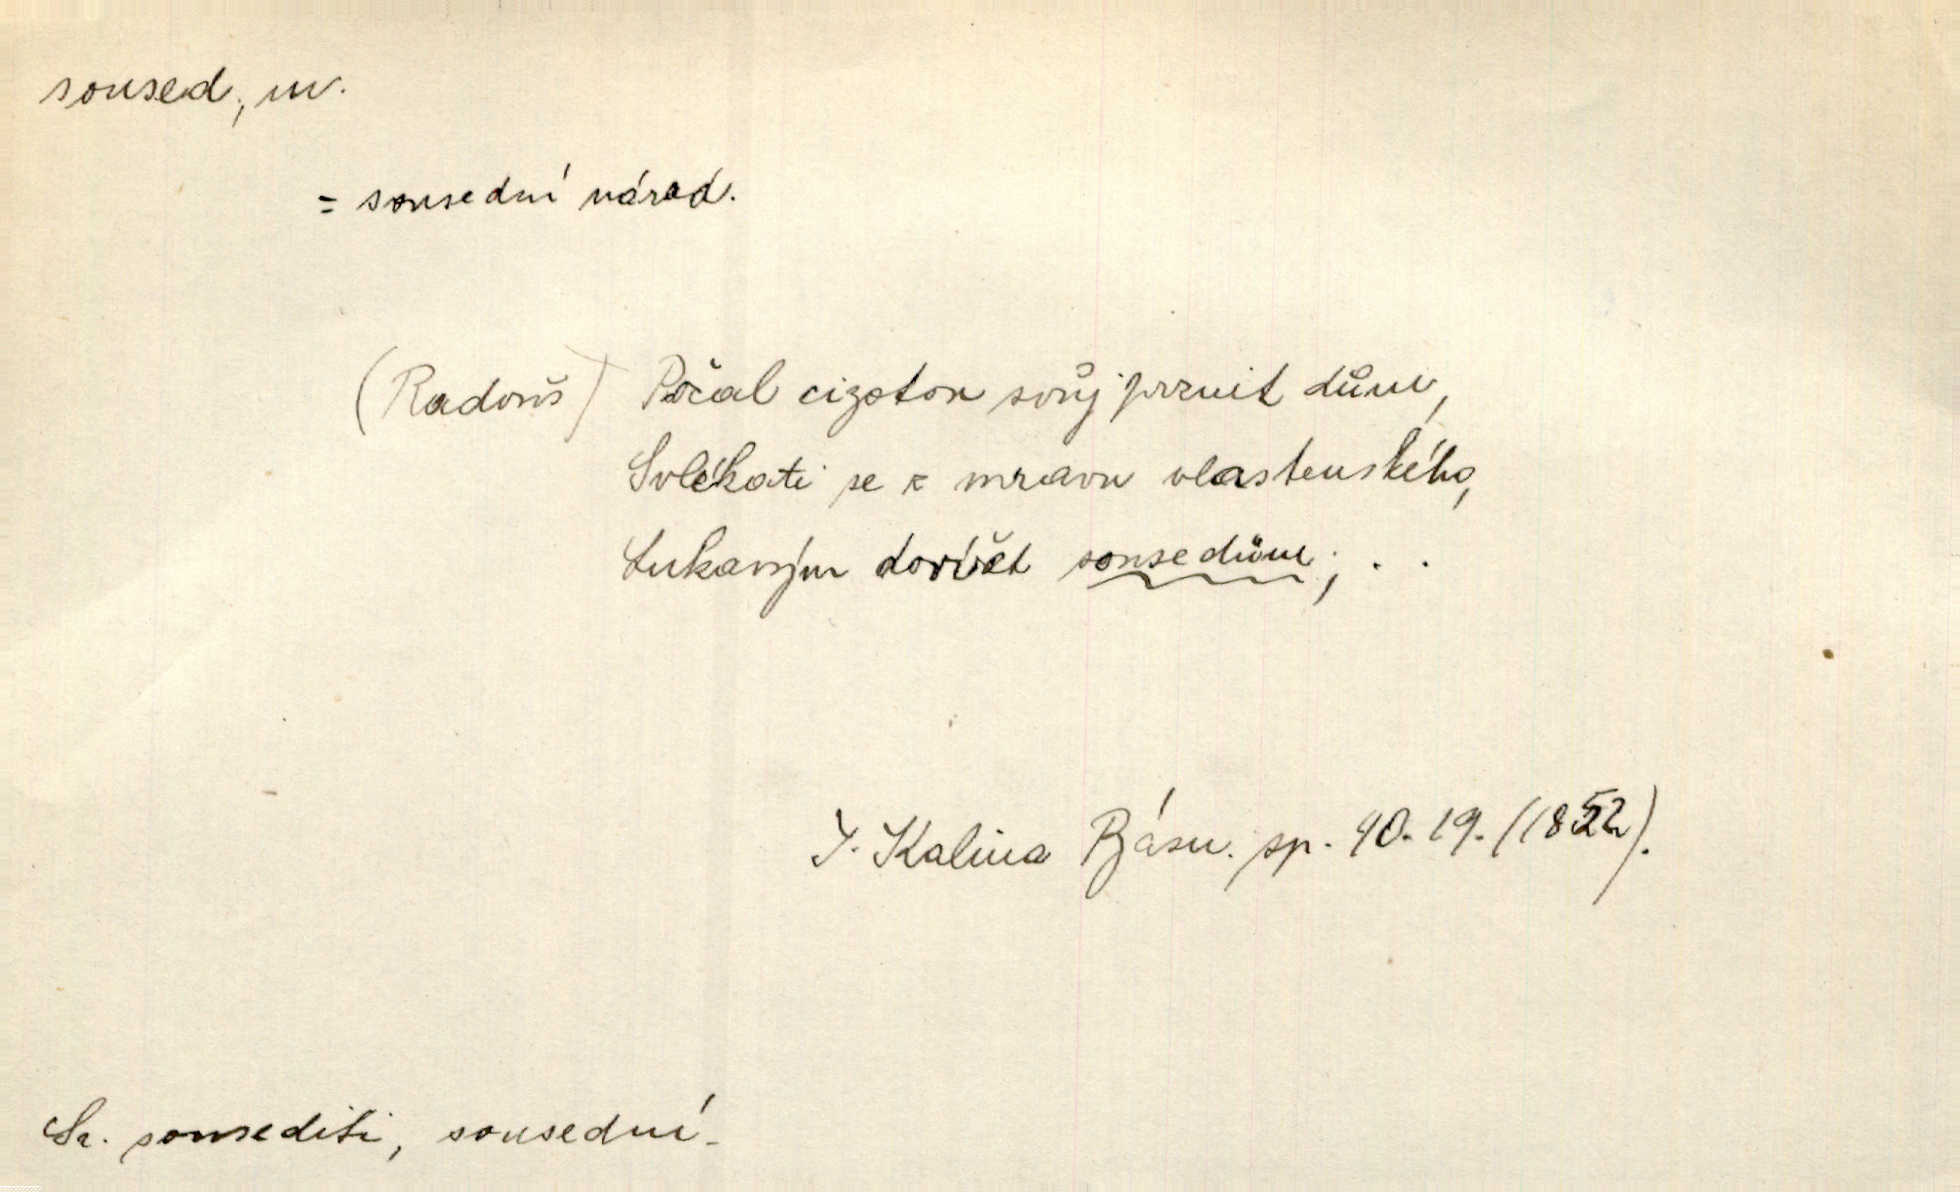 soused, m.
= sousední národ.
(Radouš) Počal cizotou svůj prznit dům,
Svlékati se z mravu vlastenského,
Lukavým dověřet sousedům; . .
J. Kalina Básn. sp. 40. 19. (1852).
Sr. sousediti, sousední.